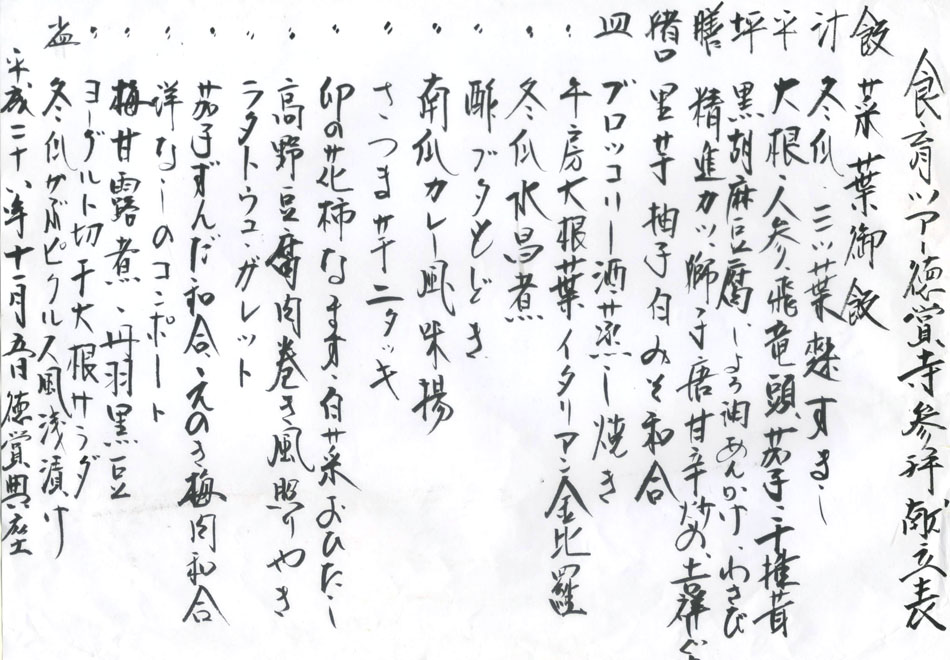 食育ツアー徳賞寺参拝献立表
飯 菜葉御飯
汁 冬瓜、三ツ葉 葛すまし
平 大根、人参、飛竜頭 茄子、干椎茸
坪 黒胡麻豆腐 しょう油あんかけ わさび
膳 精進カツ、獅子唐甘辛炒め、
猪口 里芋 柚子白みそ和合
皿 ブロッコリー酒蒸し焼き
〃 千房大根葉イタリアン金比羅
〃 冬瓜水昌煮
〃 酢ブタもどき
〃 南瓜カレー風味揚
〃 さつま芋ニタッキ
〃 卯の花 柿なます 白菜おひたし
〃 高野豆腐肉巻き風照りやき
〃 ラタトゥユ、ガレット
〃 茄子ずんだ和合、えのき梅肉和合
〃 洋なしのコンポート
〃 梅甘露煮、丹羽黒豆
〃 ヨーグルト切干大根サラダ
冬瓜かぶピクルス風浅漬け
平成二十八年十一月五日徳賞典座